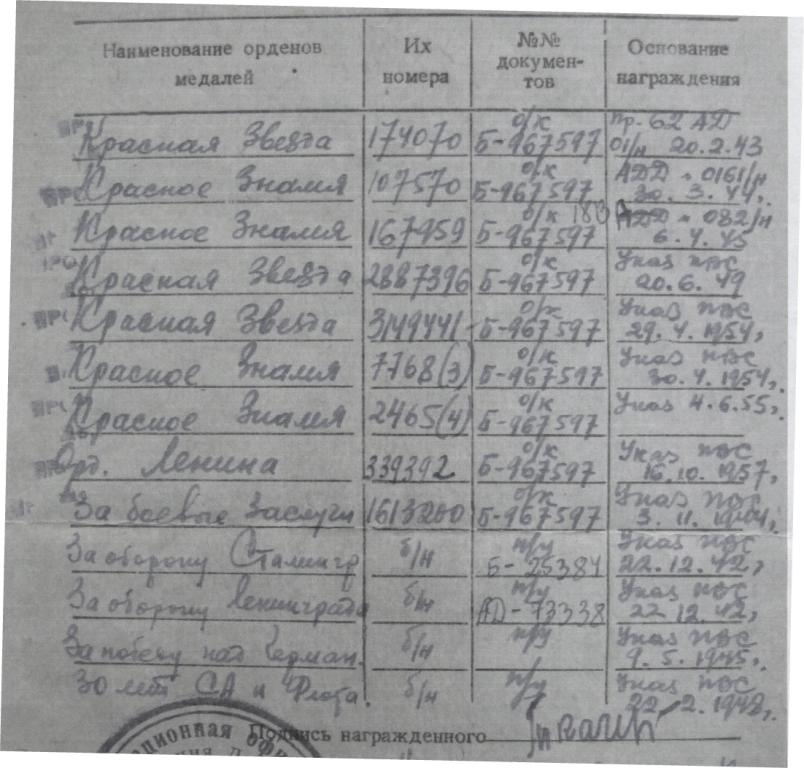 Наименование орденов медалей Их номера №№ докумен-тов Основание награждения
Красная Звезда 174070 о/к Б-967597 Пр. 62 АД 01/н 20.2.43
Красное Знамя 107570 о/к Б-967597 АДД - 0161/н 30.3.44,
Красное Знамя 167959 о/к Б-967597 082/н 6.4.45
Красная Звезда 2887396 о/к Б-967597 Указ ПВС 20.6.49
Красная Звезда 3149441 о/к Б-967597 Указ ПВС 29.4.1954,
Красное Знамя 7768(3) о/к Б-967597 Указ ПВС 30.4.1954,
Красное Знамя 2465(4) о/к Б-967597 Указ 4.6.55,
Орд. Ленина 339392 о/к Б-967597 Указ ПВС 16.10.1957,
За боевые заслуги 1613200 о/к Б-967597 Указ ПВС 3.11.1944,
За оборону Сталингр б/н п/у Б-25384 Указ ПВС 22.12.42,
За оборону Ленинграда б/н п/у АД-73338 Указ ПВС 22.12.42,
За победу над Герман. б/н п/у Указ ПВС 9.5.1945,
30 лет СА и Флота. б/н п/у Указ ПВС 22.2.1948,
Подпись награжденного